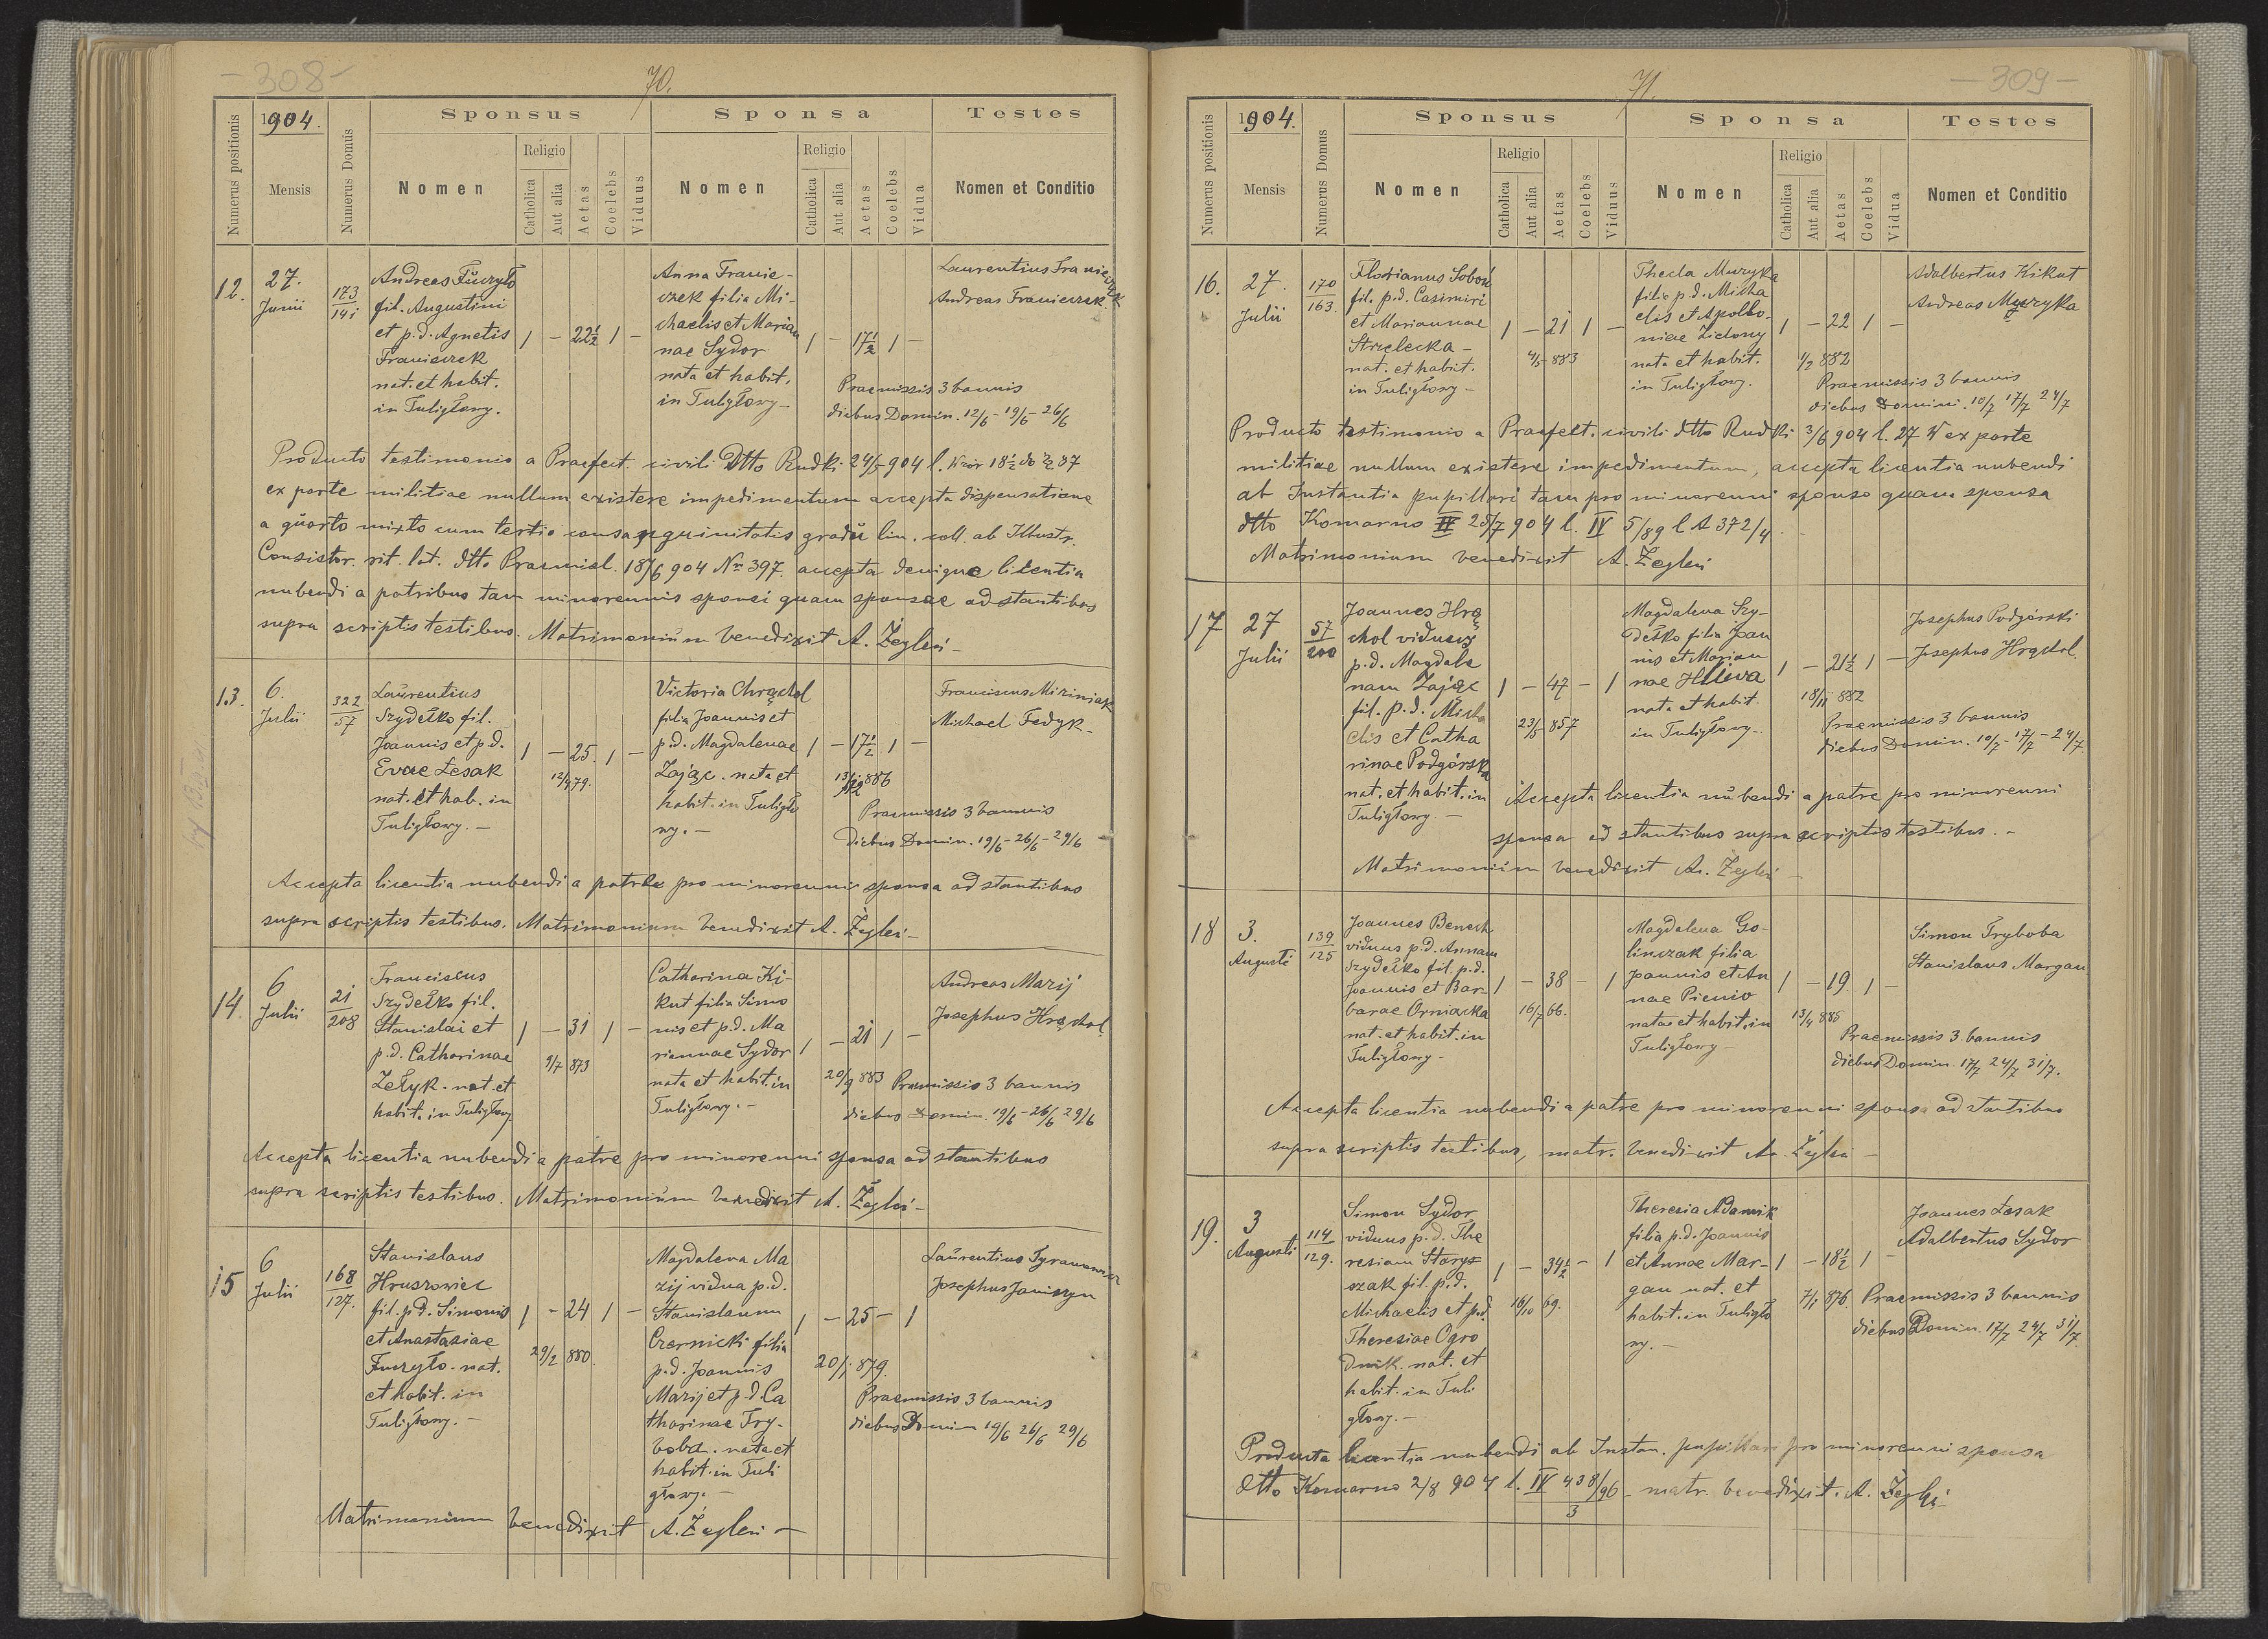 - 308 -
70.
Numerus positionis
1904.
Mensis
Numerus Domus
Sponsus
Nomen
Religio
Catholica
Aut alia
Aetas
Coelebs
Viduus
Sponsa
Nomen
Religio
Catholica
Aut alia
Aetas
Coelebs
Vidua
Testes
Nomen et Conditio
12.
27.
Junii
173
141
Andreas Fuczyło
fil. Augustini
et p.d. Agnetis
Franiczek
nat. et habit.
in Tuligłowy.
1 - 22½ 1 -
Anna Franie-
czek filia Mi-
chaelis et Marian
nae Sydor
nata et habit.
in Tuligłowy -
1 - 17½ 1 -
Laurentius Franiczek
Andreas Franiczek
Praemissis 3 bannis
diebus Domin. 12/6 - 19/6 - 26/6
Producto testimonio a Praefect. civili dtto Rudki 24/5 904 l.
ex parte militiae nullum existere impedimentum accepta dispensatione
a quarto mixto cum tertio consanguinitatis gradu lin. coll. ab Illustr.
Consistor. rit. lat. dtto Praemisl. 18/6 904 Nr 397. accepta denique licentia
nubendi a patribus tam minorennis sponsi quam sponsae ad stantibus
supra scriptis testibus. Matrimonium benedixit A. Żegleń -
13.
6.
Julii
322
57
Laurentius
Szydełko fil.
Joannis et p.d.
Evae Łesak
nat. et hab. in
Tuligłowy. -
1 - 25. 1 -
12/7 79.
Victoria Chrąchol
filia Joannis et
p.d. Magdalenae
Zając. nata et
habit. in Tuligło
wy. -
1 - 17½ 1 -
886
Franciscus Miziniak
Michael Fedyk -
Praemissis 3 bannis
diebus Domin. 19/6 - 26/6 - 29/6
Accepta licentia nubendi a patre pro minorennis sponsa ad stantibus
supra scriptis testibus. Matrimonium benedixit A. Żegleń -
14.
6
Julii
21
208
Franciscus
Szydełko fil.
Stanislai et
p.d. Catharinae
Zełyk - nat. et
habit. in Tuligłowy
1 - 31 1 -
9/7 873
Catharina Ki-
kut filia Simo
nis et p.d. Ma
riannae Sydor
nata et habit. in
Tuligłowy. -
1 - 21 1 -
20/9 883
Andreas Marij
Josephus Hrąchol
Praemissis 3 bannis
diebus Domin. 19/6 - 26/6 29/6
Accepta licentia nubendi a patre pro minorenni sponsa ad stantibus
supra scriptis testibus. Matrimonium benedixit A. Żegleń -
15
6
Julii
168
127.
Stanislaus
Hruszowiec
fil. p.d. Simonis
et Anastasiae
Fuczyło - nat.
et habit. in
Tuligłowy. -
1 - 24 1 -
29/2 880.
Magdalena Ma
zij vidua p.d.
Stanislaum
Czernicki filia
p.d. Joannis
Marij et p.d. Ca
tharinae Try-
boba. nata et
habit. in Tuli
głowy. -
1 - 25 - 1
20/1 879.
Laurentius Tyranowicz
Josephus Janiszyn
Praemissis 3 bannis
diebus Domin 19/6 26/6 29/6
Matrimonium benedixit A. Żegleń -
71.
- 309 -
Numerus positionis
1904.
Mensis
Numerus Domus
Sponsus
Nomen
Religio
Catholica
Aut alia
Aetas
Coelebs
Viduus
Sponsa
Nomen
Religio
Catholica
Aut alia
Aetas
Coelebs
Vidua
Testes
Nomen et Conditio
16.
27.
Julii
170
163.
Florianus Soboń
fil. p.d. Casimiri
et Mariannae
Strzelecka -
nat. et habit.
in Tuligłowy -
1 - 21 1 -
4/5 883
Thecla Muzyka
filia p.d. Micha
elis et Apollo-
niae Zielony
nata et habit.
in Tuligłowy.
1 - 22 1 -
1/2 882
Adalbertus Kikut
Andreas Muzyka
Praemissis 3 bannis
diebus Domini. 10/7 17/7 24/7
Producto testimonio a Praefect. civili dtto Rudki 3/6 904 l. 27 W ex parte
militiae nullum existere impedimentum, accepta licentia nubendi
ab Instantia pupillari tam pro minorenni sponso quam sponsa
dtto Komarno 25/7 904 l. IV 5/89 l A 372/4.
Matrimonium benedixit A. Żegleń
17
27
Julii
57
200
Joannes Hrą
chol viduus
p.d. Magdale
nam Zając
fil. p.d. Micha
elis et Catha
rinae Podgórska
nat. et habit. in
Tuligłowy. -
1 - 47 - 1
23/5 857
Magdalena Szy-
dełko filia Joan
nis et Marian
nae Hlliva
nat. et habit.
in Tuligłowy.
1 - 21½ 1 -
18/11 882
Josephus Podgórski
Josephus Hrąchol.
Praemissis 3 bannis
diebus Domin. 10/7 - 17/7 - 24/7
Accepta licentia nubendi a patre pro minorenni
sponsa ad stantibus supra scriptis testibus. -
Matrimonium benedixit A. Żegleń -
18
3.
Augusti
139
125
Joannes Benech
viduus p.d. Annam
Szydełko fil. p.d.
Joannis et Bar-
barae Orniacka
nat. et habit. in
Tuligłowy -
1 - 38 - 1
16/7 66.
Magdalena Go-
linczak filia
Joannis et An
nae Pienio
nata et habit. in
Tuligłowy -
1 - 19. 1 -
13/4 885
Simon Tryboba
Stanislaus Margan
Praemissis 3. bannis
diebus Domin. 17/7 24/7 31/7.
Accepta licentia nubendi a patre pro minorenni sponsa ad stantibus
supra scriptis testibus, matr. benedixit A. Żegleń -
19.
3
Augusti
114
129.
Simon Sydor
viduus p.d. The
resiam Starysz
czak fil. p.d.
Michaelis et p.d.
Theresiae Ogro
dnik. nat. et
habit. in Tuli
głowy. -
1 - 34½ - 1
16/10 69.
Theresia Adamik
filia p.d. Joannis
et Annae Mar-
gan nat. et
habit. in Tuligło
wy. -
1 - 18½ 1 -
7/1 876
Joannes Łesak
Adalbertus Sydor
Praemissis 3 bannis
diebus Domin. 17/7 24/7 31/7.
Producta licentia nubendi ab Instan. pupillari pro minorenni sponsa
dtto Komarno 2/8 904 l. IV 438/96 - matr. benedixit. A. Żegleń
3